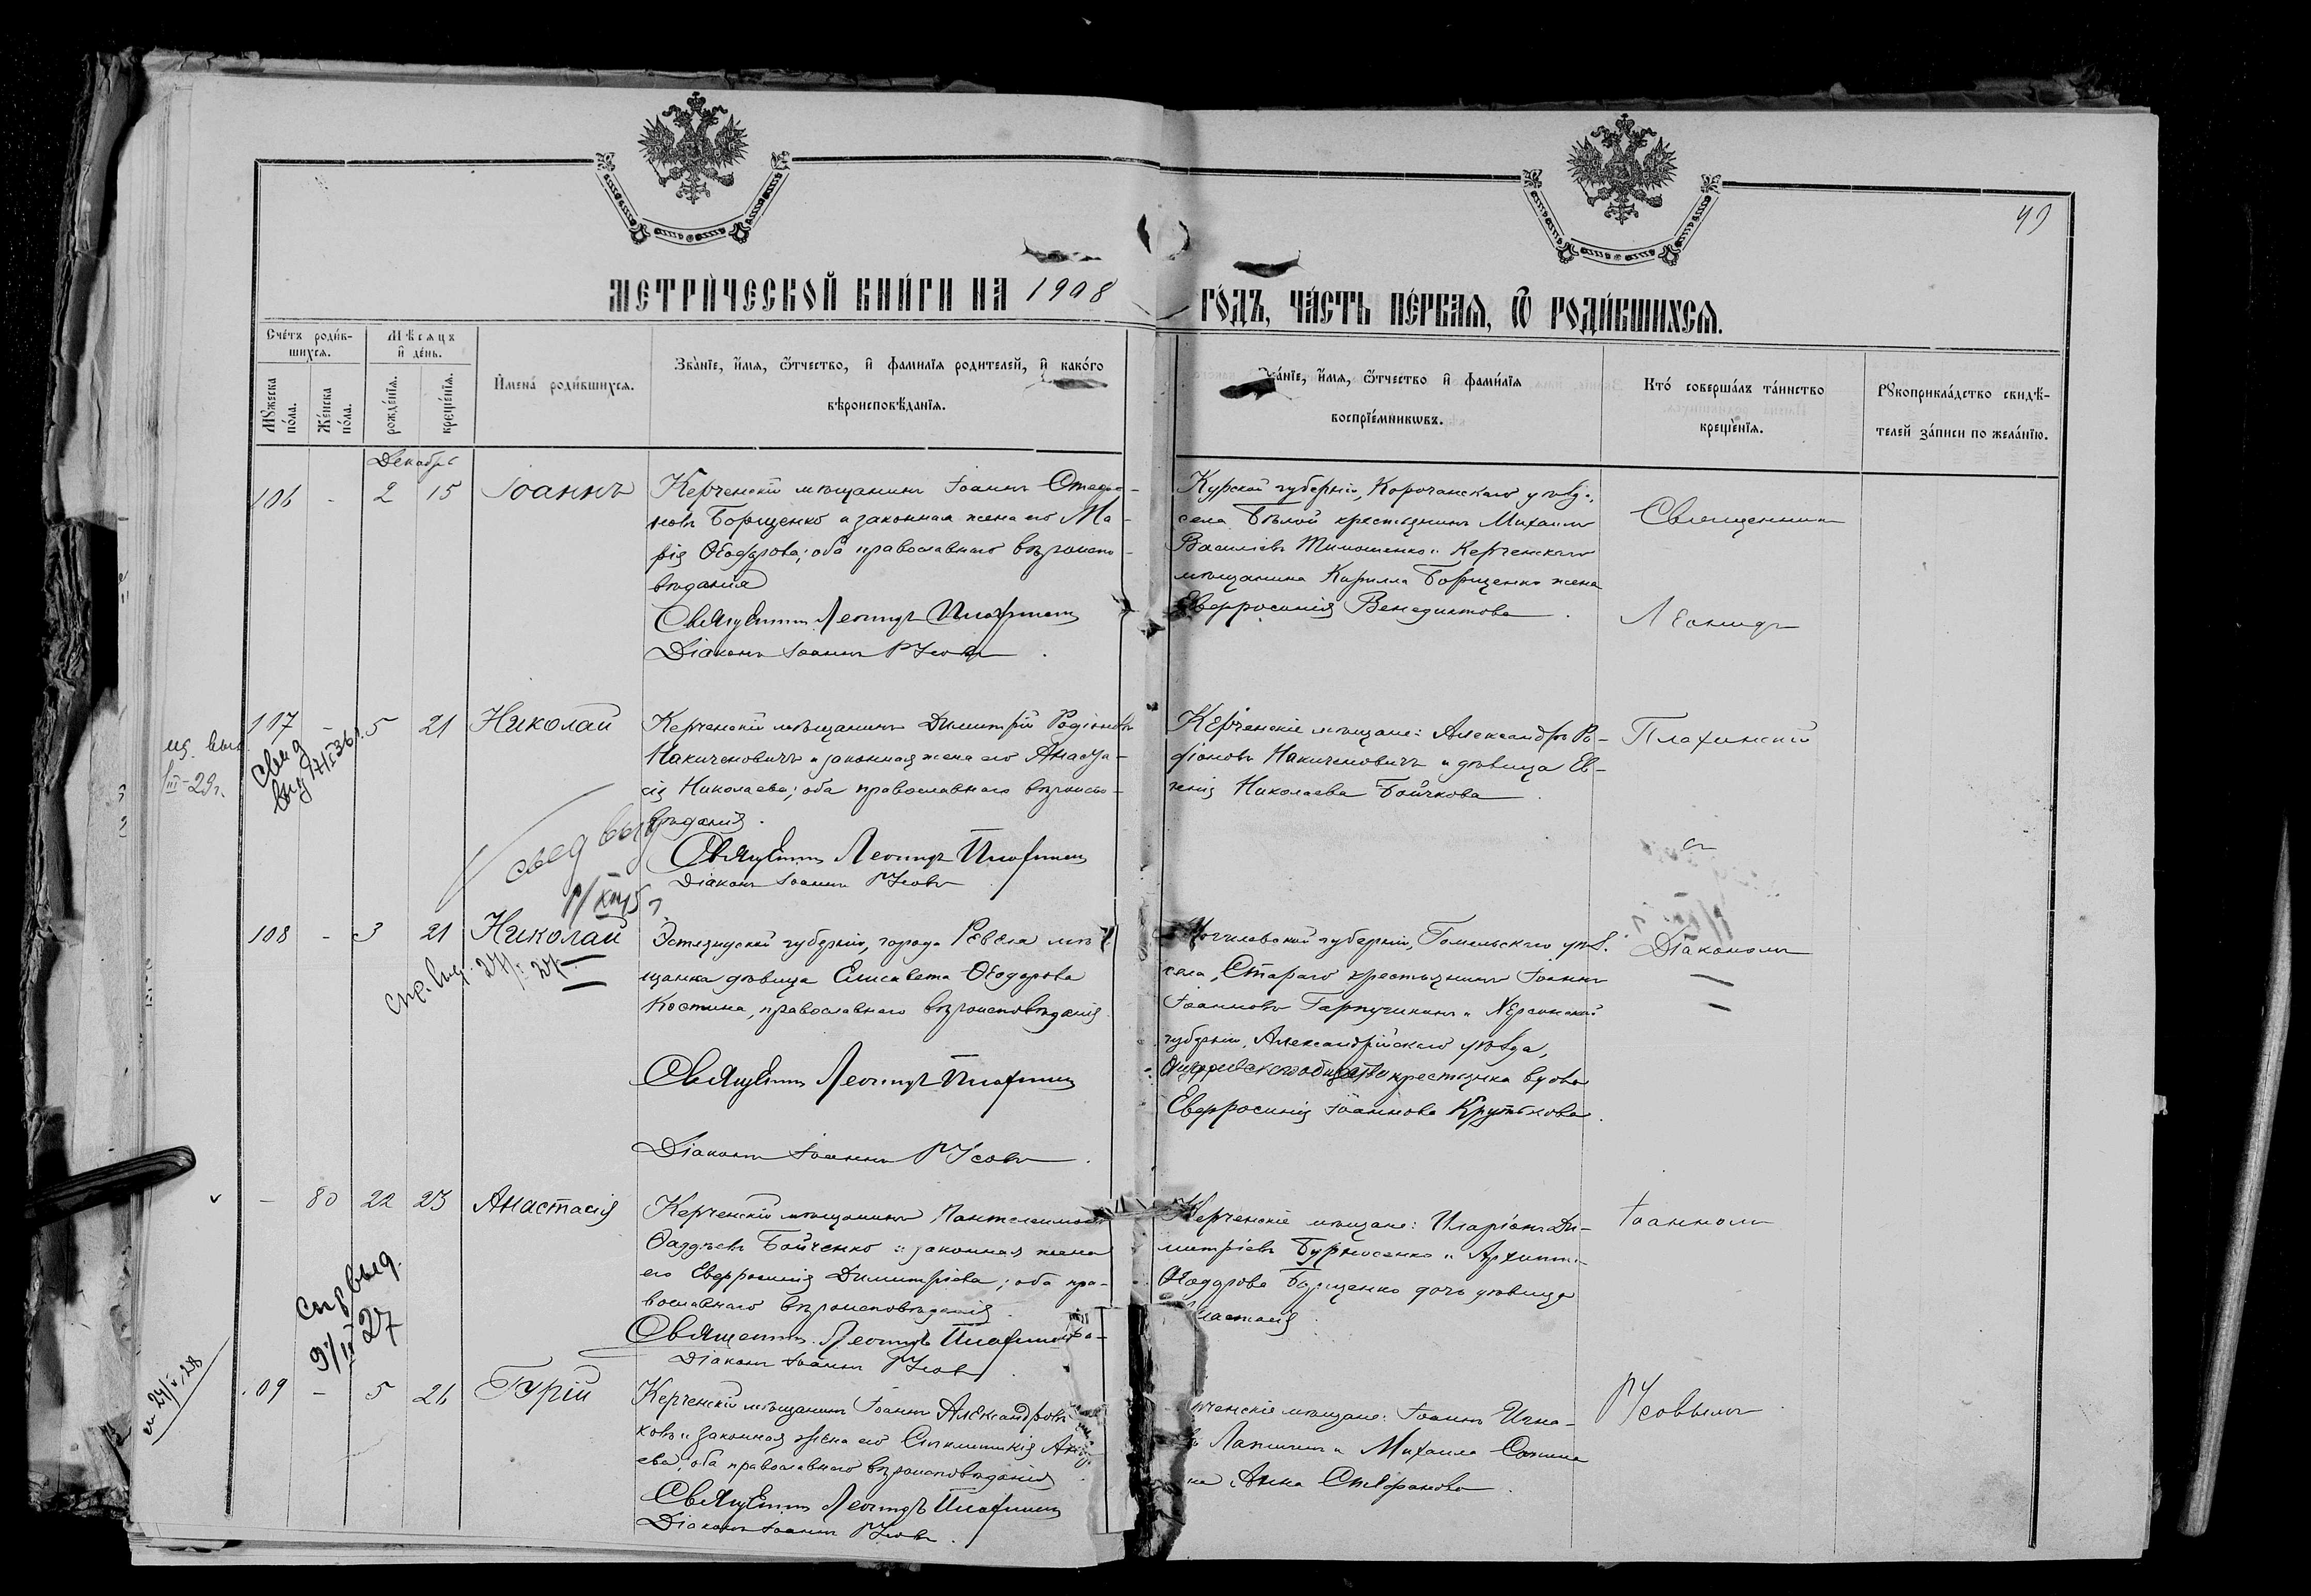 49
МЕТРИЧЕСКОЙ КНИГИ НА 1908 ГОДЪ, ЧАСТЬ ПЕРВАЯ, Ѿ РОДИВШИХСЯ.
Счетъ родив-
шихся.
Мѣсяцъ
и день.
Мужеска
пола.
Женска
пола.
рожденїя.
крещенїя.
Имена родившихся.
Званїе, имя, ѿтчество, и фамилїя родителей, и какого
вѣроисповѣданїя.
Званїе, имя, ѿтчество и фамилїя
воспрїемникѡвъ.
Кто совершалъ таинство
крещенїя.
Рукоприкладство свидѣ-
телей записи по желанїю.
Декабрь
106 - 2 15 Іоаннъ
Керченскій мѣщанинъ Іоаннъ
Борщенко и законная жена его Ма-
рія Ѳеодорова; оба православнаго вѣроиспо-
вѣданія
Священникъ Леонидъ
Діаконъ Іоаннъ Русовъ
Курской губерніи, Корочанскаго уѣзда,
села Бѣлой крестьянинъ Михаилъ
Василіевъ Тимошенко и Керченскаго
мѣщанина Кирилла Борщенко жена
Евфросинія Венедиктова.
Священникъ
Леонидъ
107 - 5 21 Николай
Керченскій мѣщанинъ Димитрій Родіоновъ
Накиченовичъ и законная жена его Анаста-
сія Николаева; оба православнаго вѣроиспо-
вѣданія.
Священникъ Леонидъ
Діаконъ Іоаннъ Русовъ
Керченскіе мѣщане: Александръ Ро-
діоновъ Накиченовичъ и дѣвица Ев-
генія Николаева Бойчкова.
Плахинскій
съ
свид
выд 17/I 36 г.
III-29г.
свед выд
108 - 3 21 Николай
спр. выд. 24/I 24 г.
Эстляндской губерніи, города Ревеля мѣ-
щанка дѣвица Елисавета Ѳеодорова
Костина, православнаго вѣроисповѣданія.
Священникъ Леонидъ
Діаконъ Іоаннъ Русовъ.
Могилевской губерніи, Гомельскаго уѣз.
села Стараго крестьянинъ Іоаннъ
Іоанновъ и Херсонской
губерніи, Александрійскаго уѣзда,
общества крестьянка вдова
Евфросинія Іоаннова Крутькова.
Діакономъ
- 80 22 23 Анастасія
Керченскій мѣщанинъ Пантелеимонъ
Ѳаддѣевъ Бойченко и законная жена
его Евфросинія Димитріева; оба пра-
вославнаго вѣроисповѣданія.
Священникъ Леонидъ
Діаконъ Іоаннъ Русовъ
Керченскіе мѣщане: Иларіонъ Ди-
митріевъ Бурносенко и
Ѳеодорова Борщенко дочь дѣвица
Анастасія.
Іоанномъ
спр выд.
9/II 27
109 - 5 26 Гурій
Керченскій мѣщанинъ Іоаннъ Александровъ
ковъ и законная жена его Синклитикія
ева; оба православнаго вѣроисповѣданія
Священникъ Леонидъ
Діаконъ Іоаннъ Русовъ.
мѣщане: Іоаннъ Игна-
Лапшинъ и Михаила
Анна Стефанова.
Русовымъ.